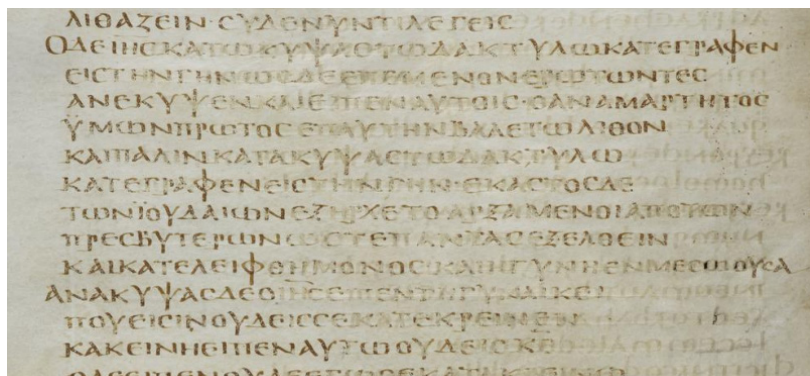 ΛΙΘΑΖΕΙΝ·ϹΥΔΕΝΥΝΤΙΛΕΓΕΙϹ
ΟΔΕΙΗϹΚΑΤΩΚΥΨΑϹΤΩΔΑΚΤΥΛΩΚΑΤΕΓΡΑΦΕΝ
ΕΙϹΤΗΝΓΗΝΩϹΔΕΕΠΕΜΕΝΟΝΕΡΩΤΩΝΤΕϹ
ΑΝΕΚΥΨΕΝΚΑΙΕΙΠΕΝΑΥΤΟΙϹ·ΟΑΝΑΜΑΡΤΗΤΟϹ
ΫΜΩΝΠΡΩΤΟϹΕΠΑΥΤΗΝΒΑΛΕΤΩΛΙΘΟΝ
ΚΑΙΠΑΛΙΝΚΑΤΑΚΥΨΑϹΤΩΔΑΚΤΥΛΩ
ΚΑΤΕΓΡΑΦΕΝΕΙϹΤΗΝΓΗΝ·ΕΚΑϹΤΟϹΔΕ
ΤΩΝΪΟΥΔΑΙΩΝΕΞΗΡΧΕΤΟΑΡΞΑΜΕΝΟΙΑΠΟΤΩΝ
ΠΡΕϹΒΥΤΕΡΩΝΩϹΤΕΠΑΝΤΑϹΕΞΕΛΘΕΙΝ
ΚΑΙΚΑΤΕΛΕΙΦΘΗΜΟΝΟϹΚΑΙΗΓΥΝΗΕΝΜΕϹΩΟΥϹΑ
ΑΝΑΚΥΨΑϹΔΕΟΙΗϹΕΙΠΕΝΤΗΓΥΝΑΙΚΕΙ
ΠΟΥΕΙϹΙΝΟΥΔΕΙϹϹΕΚΑΤΕΚΡΕΙΝΕΝ
ΚΑΚΕΙΝΗΕΙΠΕΝΑΥΤΩΟΥΔΕΙϹΚΕ